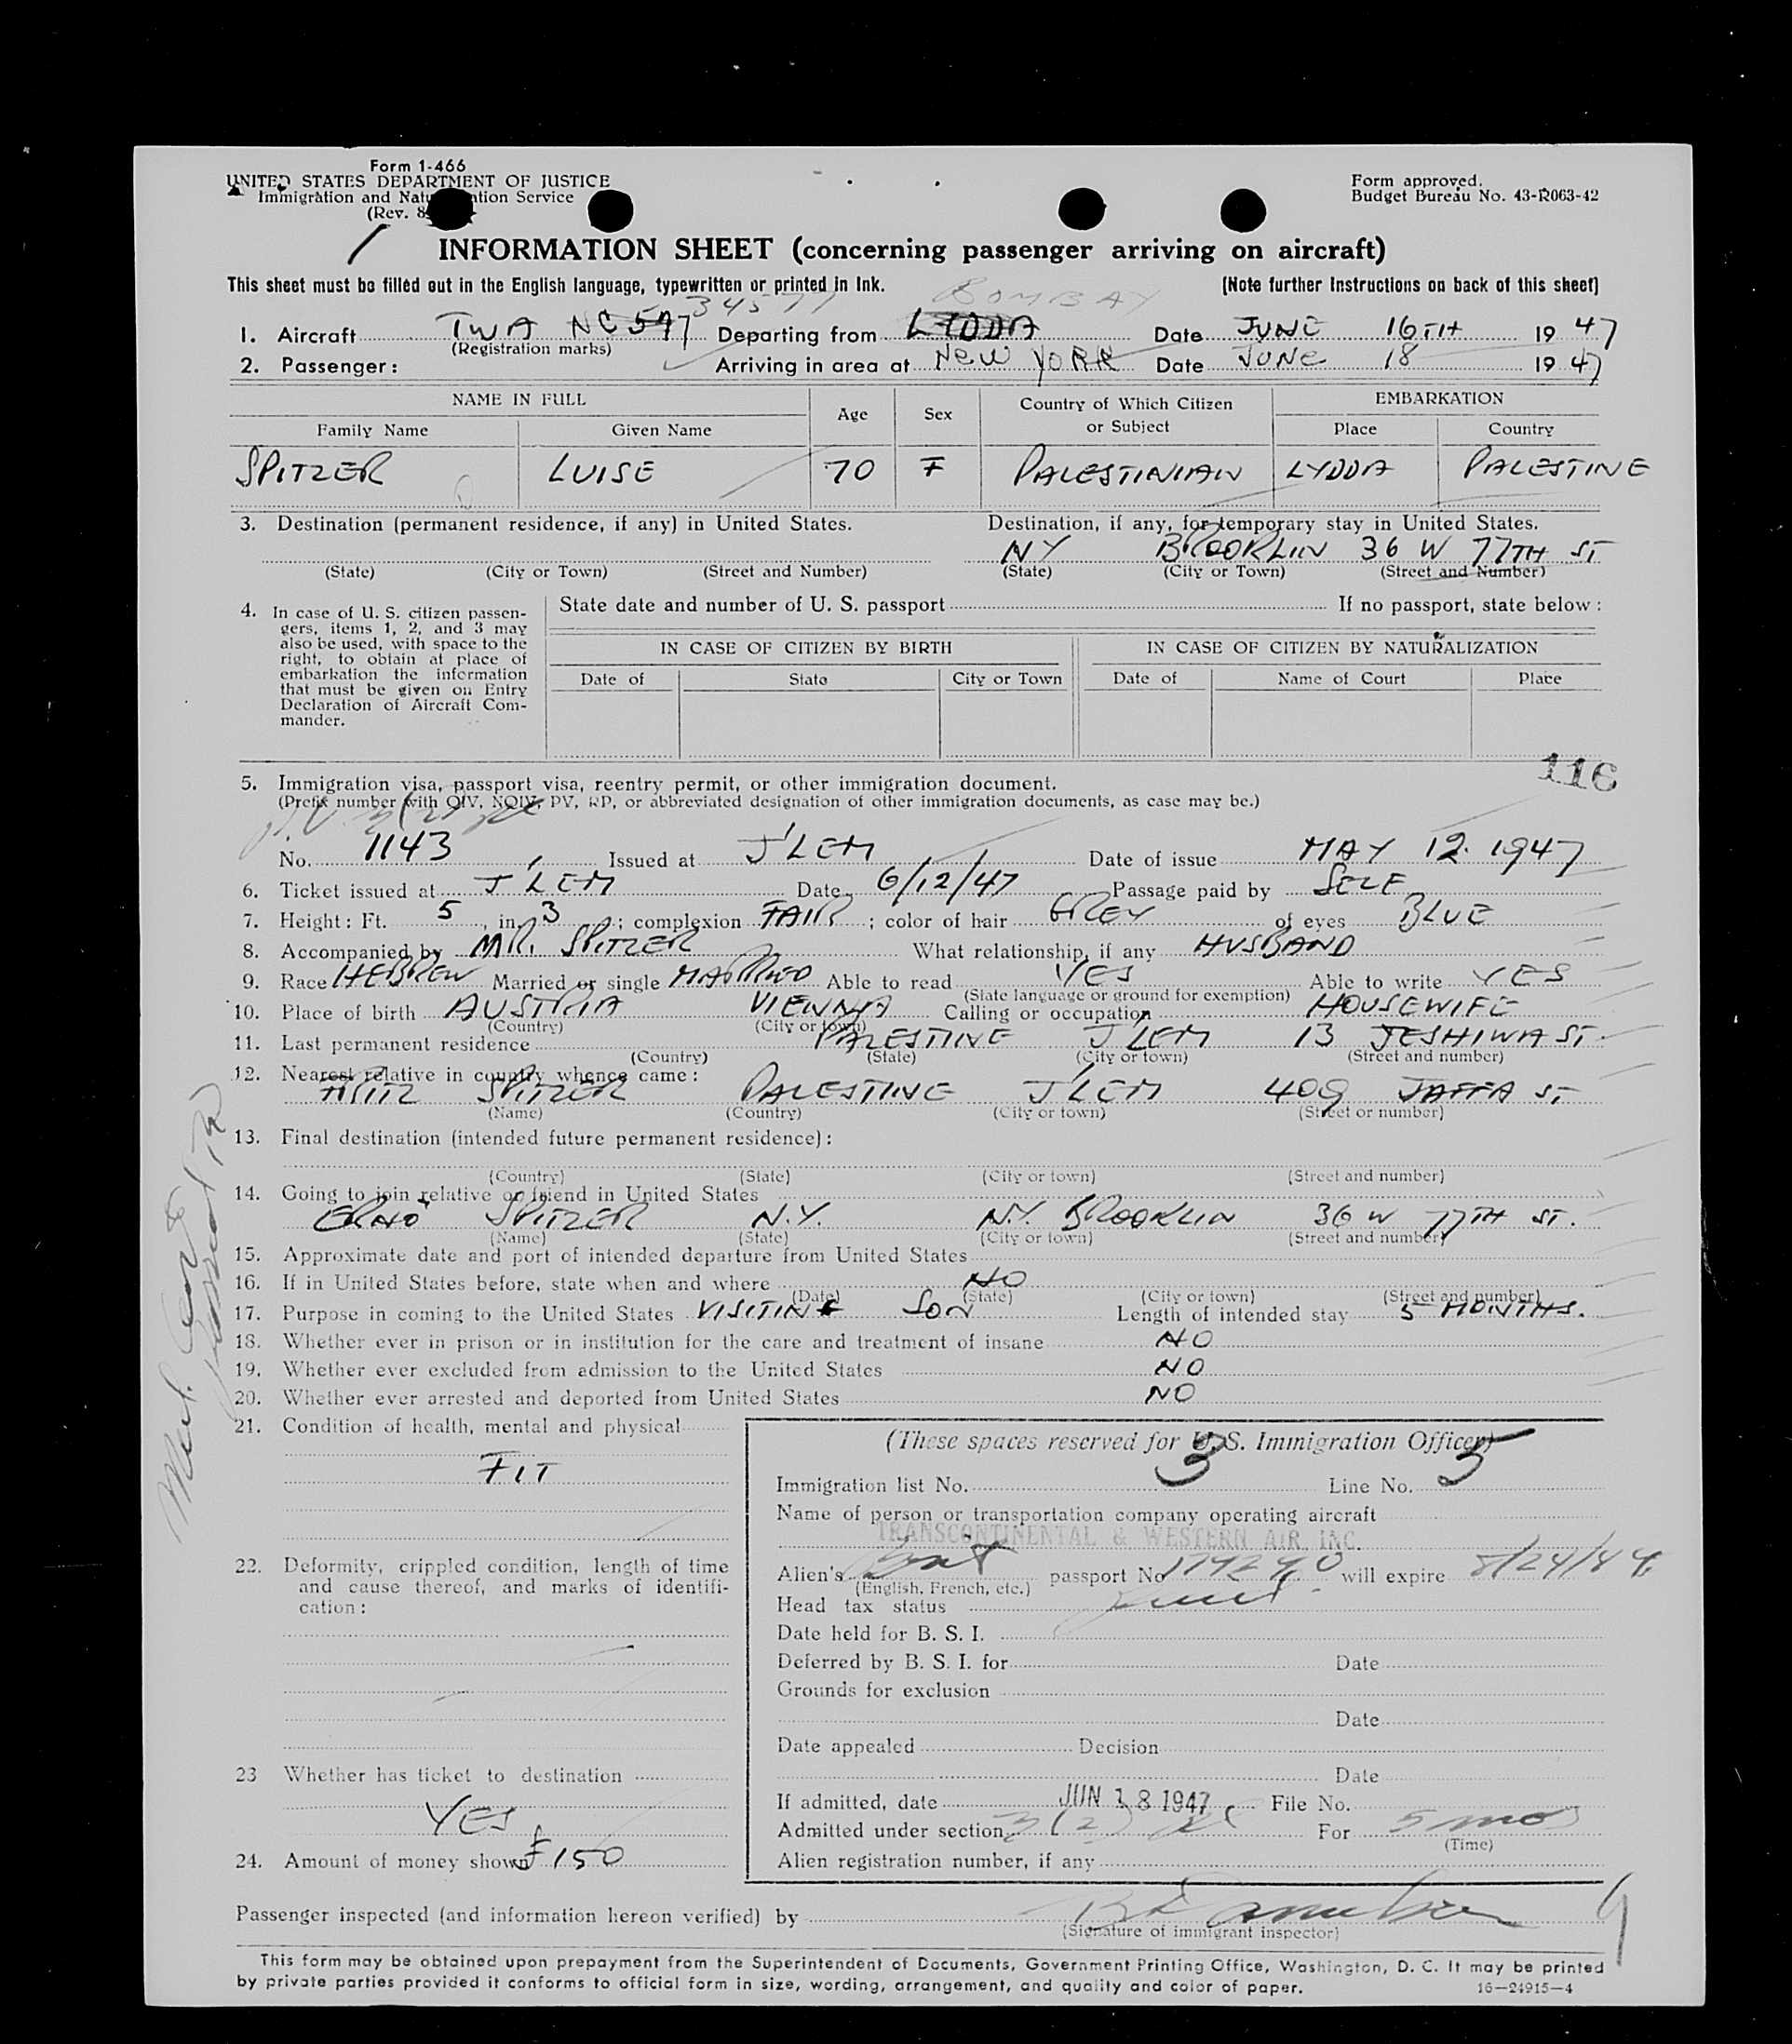 Form 1-466
UNITED STATES DEPARTMENT OF JUSTICE
Immigration and Naturalization Service
(Rev. 8
Form approved.
Budget Bureau No. 43-R063-42
INFORMATION SHEET (concerning passenger arriving on aircraft)
This sheet must be filled out in the English language, typewritten or printed in Ink. [Note further Instructions on back of this sheet]
34577 BOMBAY
1. Aircraft TWA NC 597 Departing from LYDDA Date JUNE 16TH 1947
(Registration marks)
2. Passenger: Arriving in area at NEW YORK Date JUNE 18 1947
NAME IN FULL Age Sex Country of Which Citizen or Subject EMBARKATION
Family Name Given Name Place Country
SPITZER LUISE 70 F PALESTINIAN LYDDA PALESTINE
3. Destination (permanent residence, if any) in United States. Destination, if any, for temporary stay in United States.
NY BROOKLIN 36 W 77TH ST
(State) (City or Town) (Street and Number) (State) (City or Town) (Street and Number)
4. In case of U. S. citizen passen-
gers, items 1, 2, and 3 may
also be used, with space to the
right, to obtain at place of
embarkation the information
that must be given on Entry
Declaration of Aircraft Com-
mander.
State date and number of U. S. passport If no passport, state below:
IN CASE OF CITIZEN BY BIRTH IN CASE OF CITIZEN BY NATURALIZATION
Date of State City or Town Date of Name of Court Place
116
5. Immigration visa, passport visa, reentry permit, or other immigration document.
(Prefix number with QIV, NQIV, PV, RP, or abbreviated designation of other immigration documents, as case may be.)
No. 1143 Issued at J'LEM Date of issue MAY 12. 1947
6. Ticket issued at J'LEM Date 6/12/47 Passage paid by SELF
7. Height: Ft. 5, in. 3; complexion FAIR; color of hair GREY of eyes BLUE
8. Accompanied by MR. SPITZER What relationship, if any HUSBAND
9. Race HEBREW Married or single MARRIED Able to read YES Able to write YES
(State language or ground for exemption)
10. Place of birth AUSTRIA VIENNA Calling or occupation HOUSEWIFE
(Country) (City or town)
11. Last permanent residence PALESTINE J'LEM 13 JESHIWA ST.
(Country) (State) (City or town) (Street and number)
12. Nearest relative in country whence came:
FRITZ SPITZER PALESTINE J'LEM 409 JAFFA ST
(Name) (Country) (City or town) (Street or number)
13. Final destination (intended future permanent residence):
(Country) (State) (City or town) (Street and number)
14. Going to join relative or friend in United States
ERNÖ SPITZER N.Y. N.Y. BROOKLIN 36 W 77TH ST.
(Name) (State) (City or town) (Street and number)
15. Approximate date and port of intended departure from United States
16. If in United States before, state when and where NO
(Date) (State) (City or town) (Street and number)
17. Purpose in coming to the United States VISITING SON Length of intended stay 5 MONTHS.
18. Whether ever in prison or in institution for the care and treatment of insane NO
19. Whether ever excluded from admission to the United States NO
20. Whether ever arrested and deported from United States NO
21. Condition of health, mental and physical
FIT
22. Deformity, crippled condition, length of time
and cause thereof, and marks of identifi-
cation:
23 Whether has ticket to destination
YES
24. Amount of money shown £150
(These spaces reserved for U. S. Immigration Officer)
Immigration list No. 3 Line No. 5
Name of person or transportation company operating aircraft
TRANSCONTINENTAL & WESTERN AIR. INC.
Alien's passport No. will expire
(English, French, etc.)
Head tax status
Date held for B. S. I.
Deferred by B. S. I. for Date
Grounds for exclusion
Date
Date appealed Decision
Date
If admitted, date JUN 18 1947 File No.
Admitted under section 3(2) For 5 mos
(Time)
Alien registration number, if any
Passenger inspected (and information hereon verified) by
(Signature of immigrant inspector)
This form may be obtained upon prepayment from the Superintendent of Documents, Government Printing Office, Washington, D. C. It may be printed
by private parties provided it conforms to official form in size, wording, arrangement, and quality and color of paper. 16—24915-4